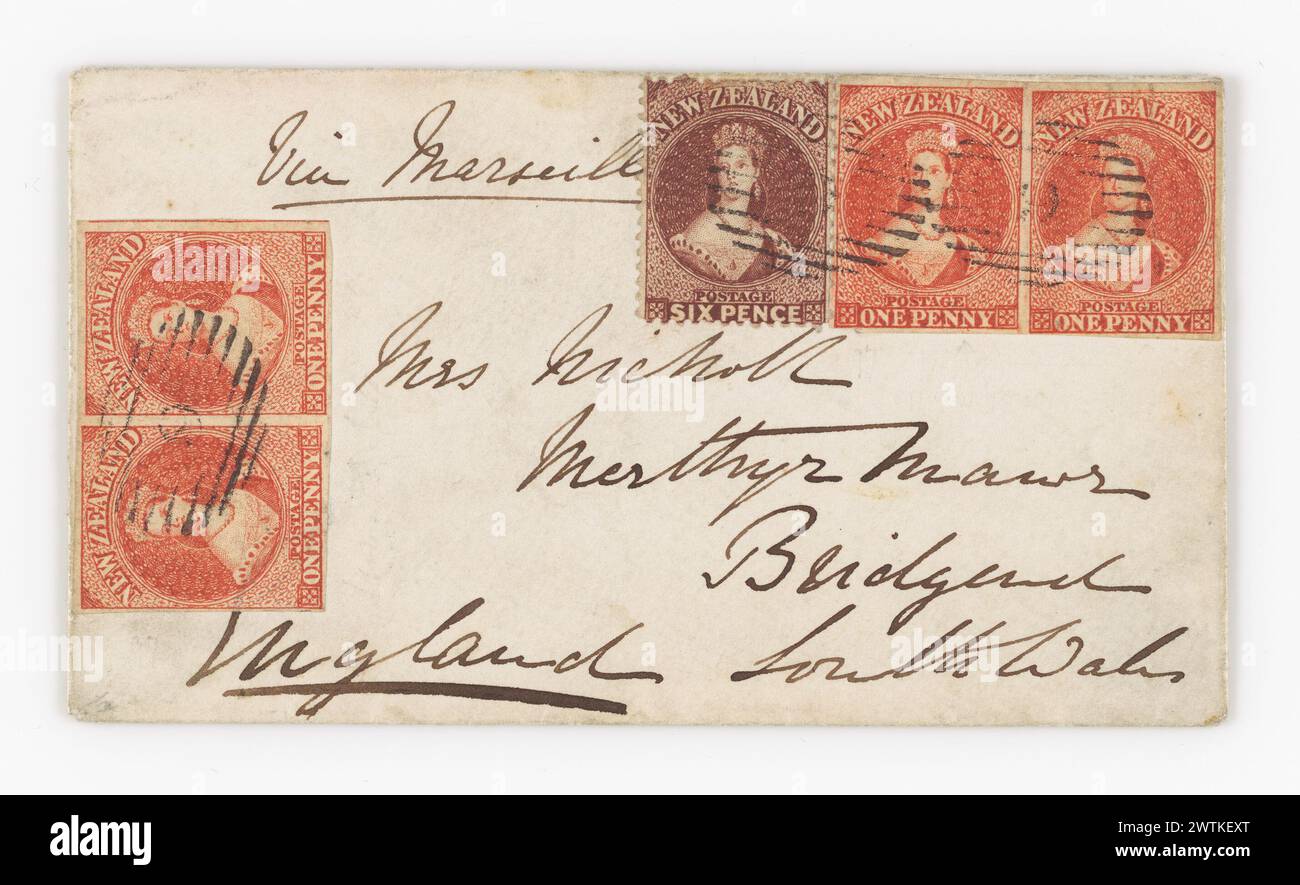 Via Marseill
NEW ZEALAND
POSTAGE
SIX PENCE
NEW ZEALAND
POSTAGE
ONE PENNY
NEW ZEALAND
POSTAGE
ONE PENNY
NEW ZEALAND
POSTAGE
ONE PENNY
NEW ZEALAND
POSTAGE
ONE PENNY
Mrs Nicholl
Merthyr Mawr
Bridgend
South Wales
England
alamy
alamy
Image ID: 2WTKEXT
www.alamy.com